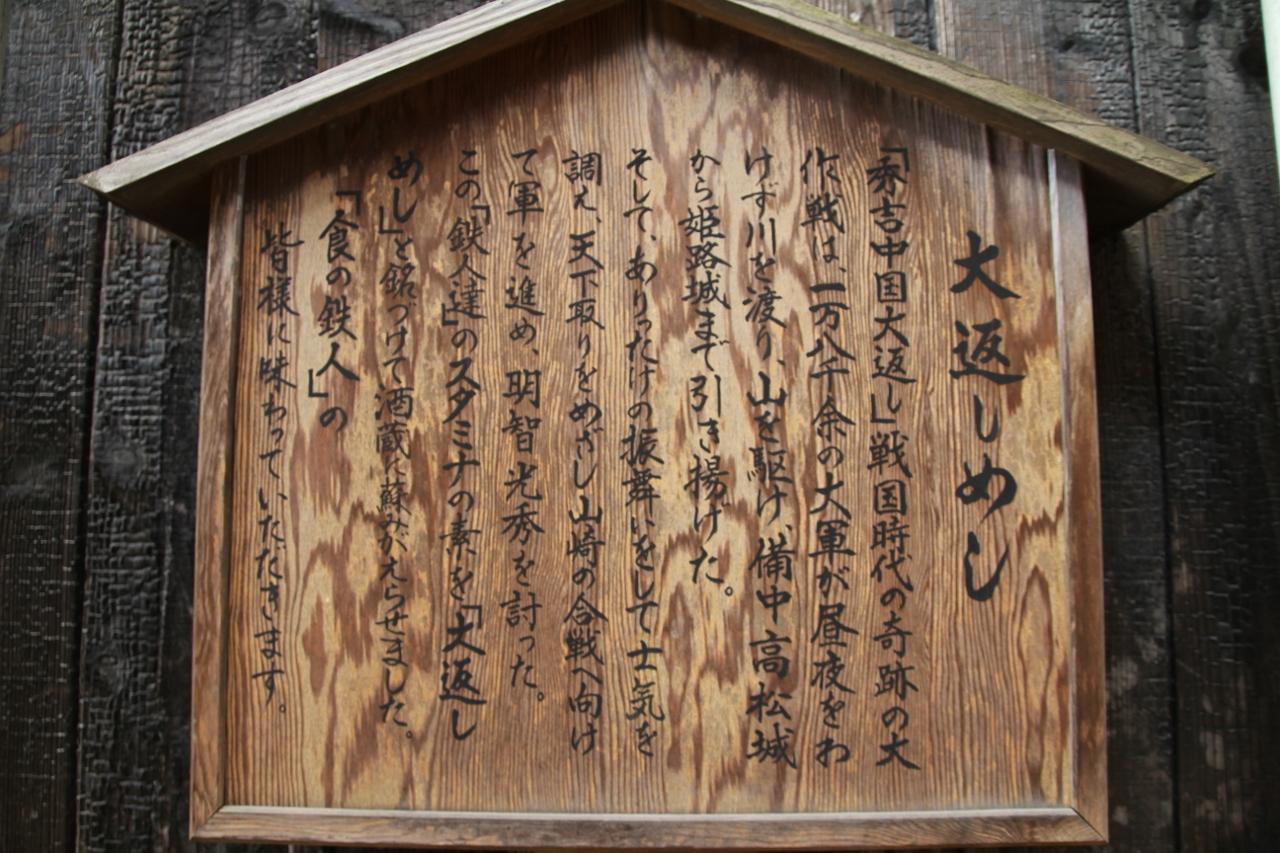 大返しめし
「秀吉中国大返し」戦国時代の奇跡の大
作戦は、一万八千余の大軍が昼夜をわ
けず川を渡り、山を駆け、備中高松城
から姫路城まで引き揚げた。
そして、ありったけの振舞いをして士気を
調え、天下取りをめざし山崎の合戦へ向け
て軍を進め、明智光秀を討った。
この「鉄人達」のスタミナの素を「大返し
めし」と銘づけて酒蔵に蘇みがえらせました。
「食の鉄人」の
皆様に味わっていただきます。